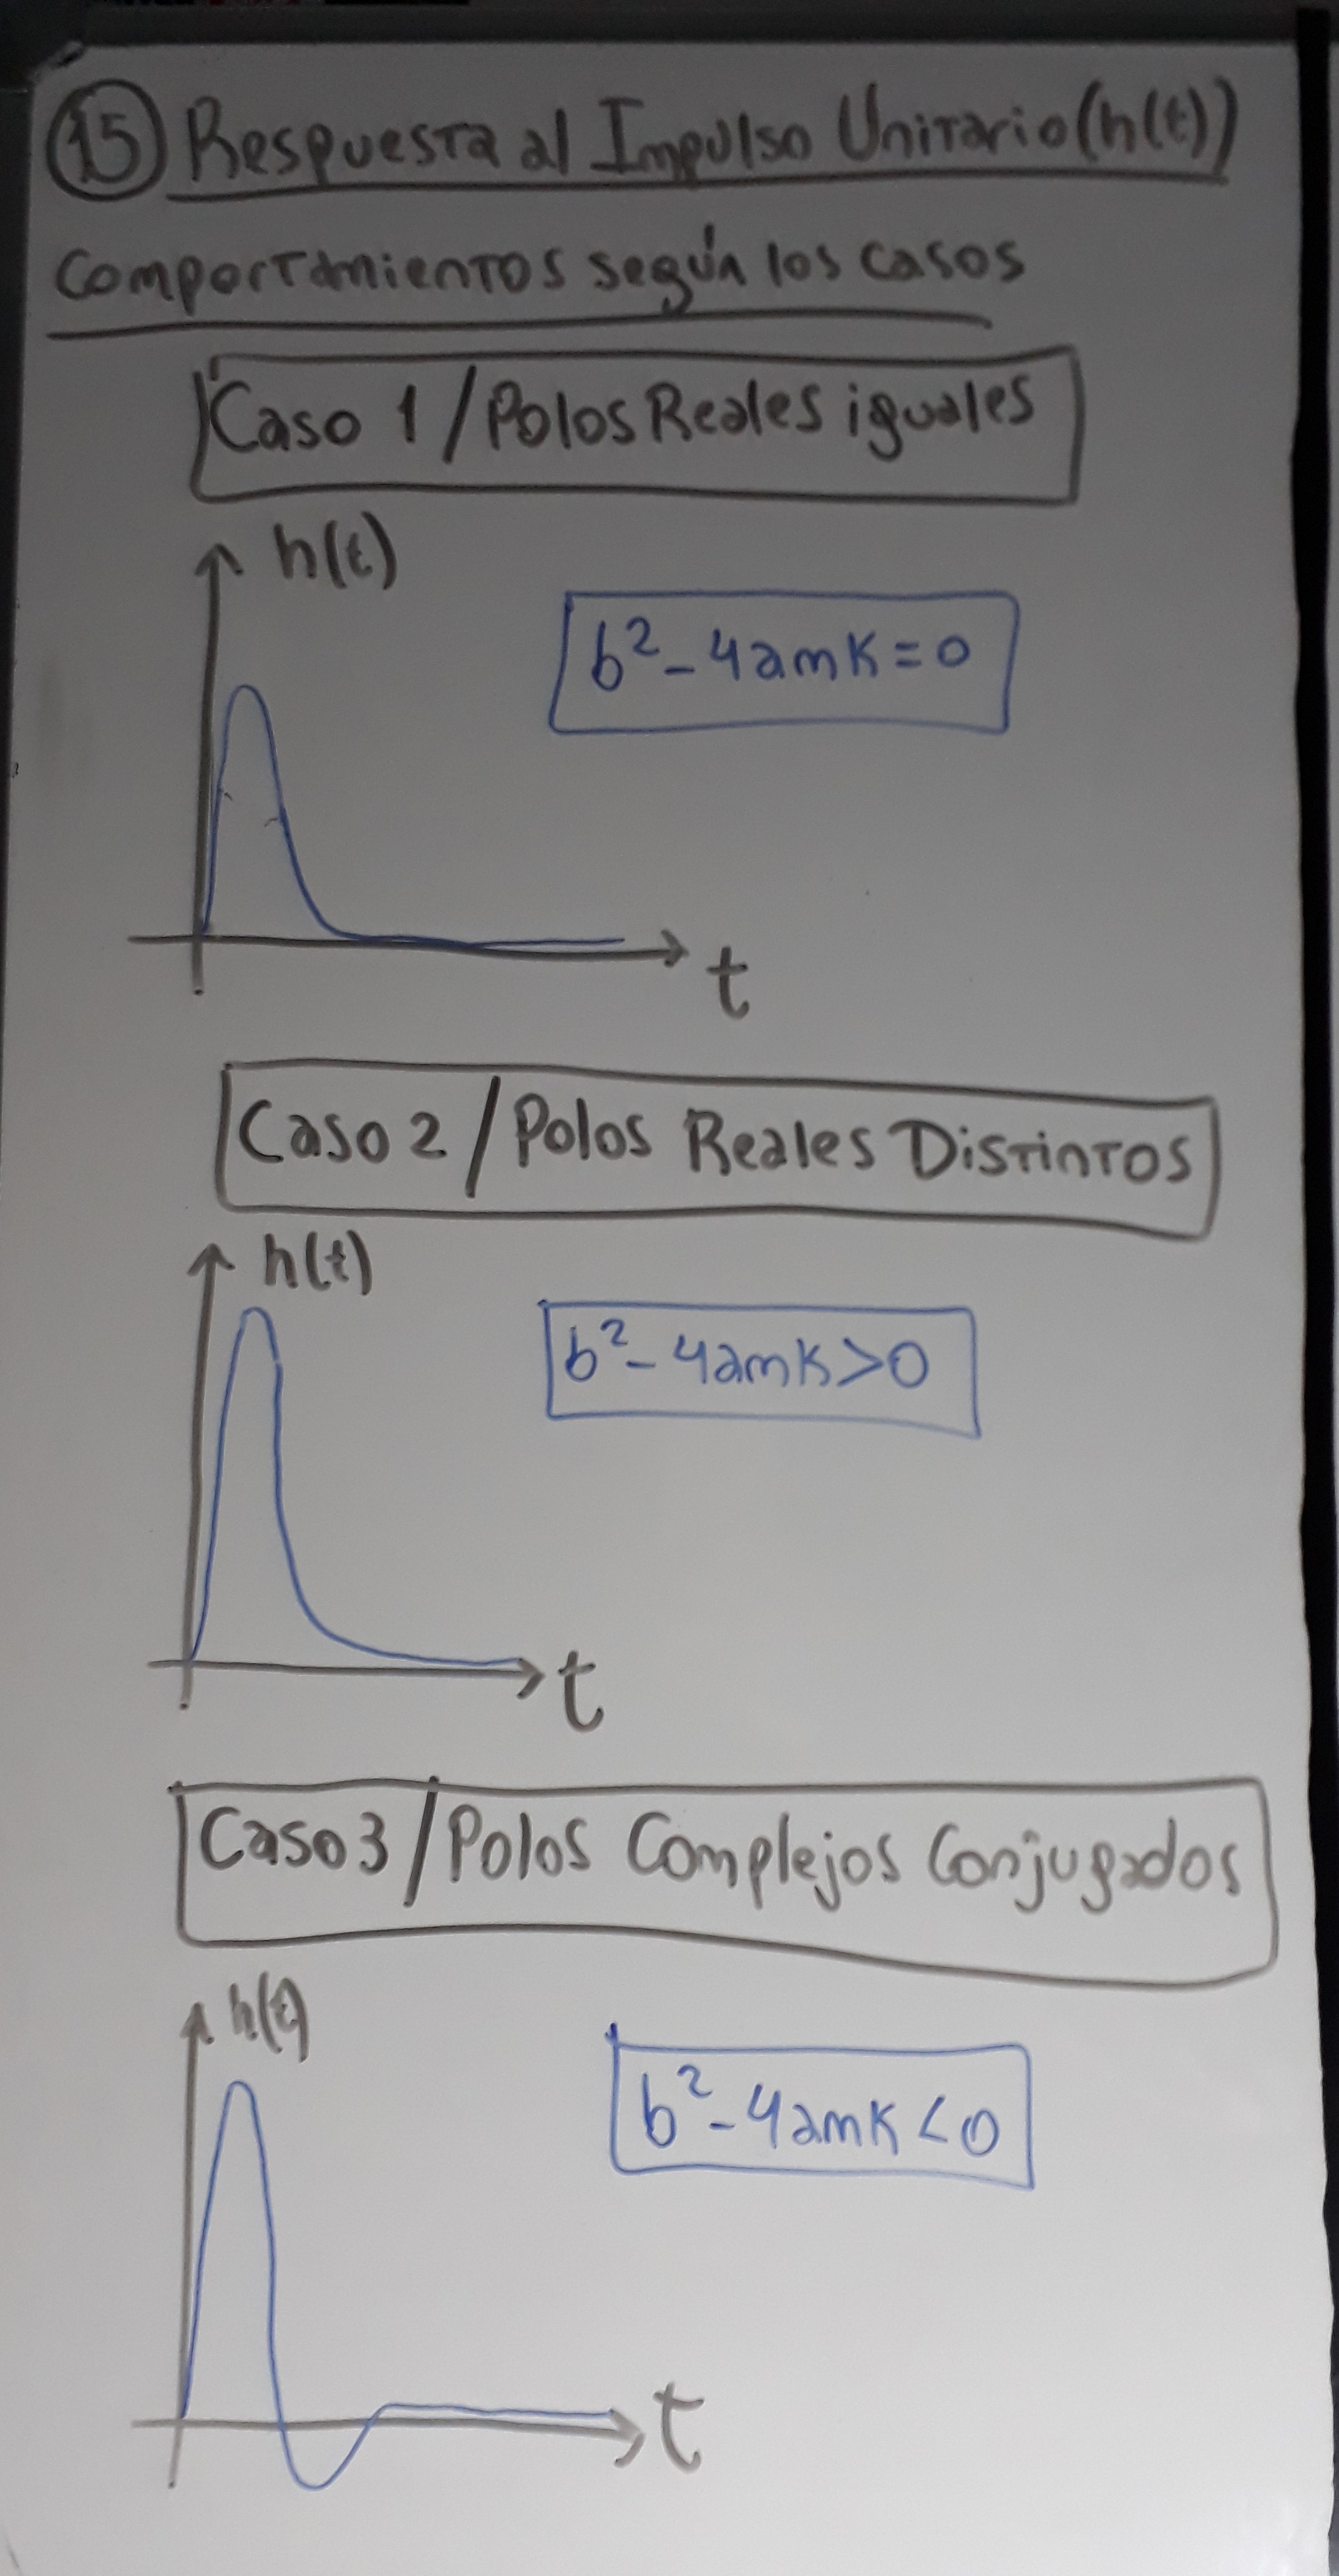 15 Respuesta al Impulso Unitario (h(t))
Comportamientos según los casos
Caso 1 / Polos Reales iguales
h(t)
b² - 4amK = 0
t
Caso 2 / Polos Reales Distintos
h(t)
b² - 4amK > 0
t
Caso 3 / Polos Complejos Conjugados
h(t)
b² - 4amK < 0
t